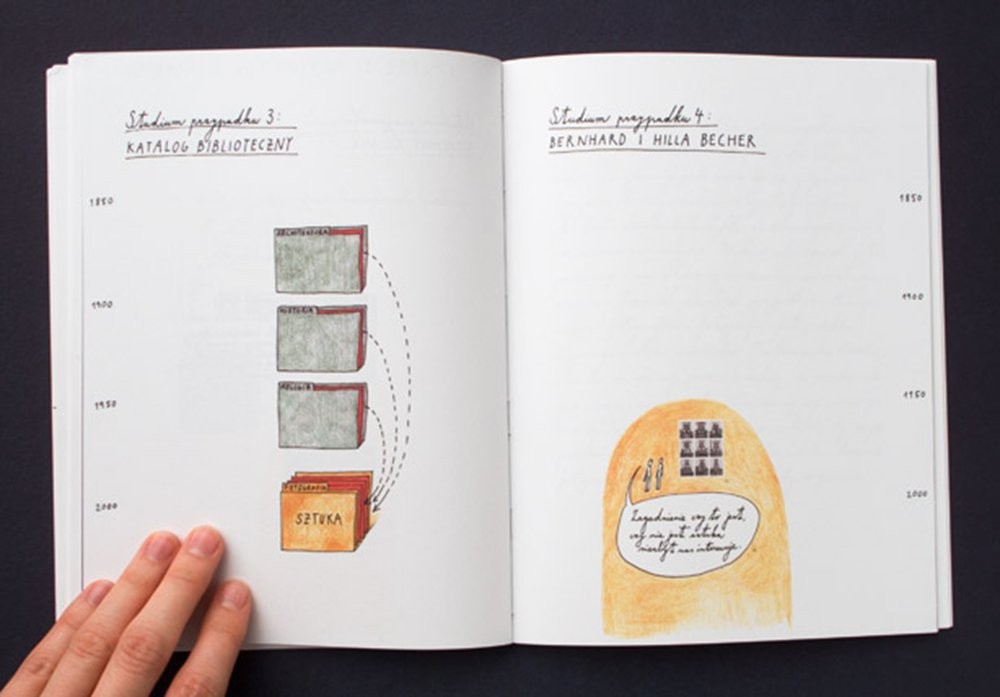 Studium przypadku 3:
KATALOG BIBLIOTECZNY
1850
1900
1950
2000
ARCHITEKTURA
HISTORIA
RELIGIA
FOTOGRAFIA
SZTUKA
Studium przypadku 4:
BERNHARD I HILLA BECHER
1850
1900
1950
2000
Zagadnienie czy to jest,
czy nie jest sztuka
niezbyt nas interesuje.